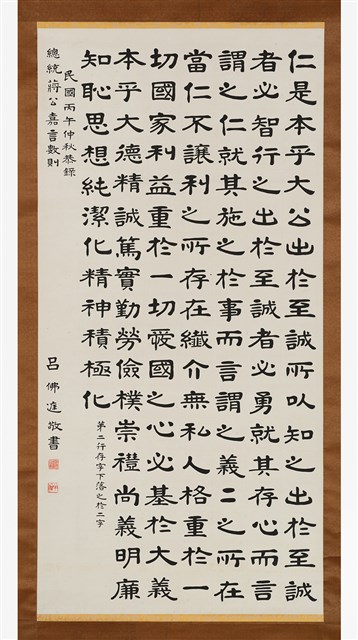 仁是本乎大公出於至誠所以知之出於至誠
者必智行之出於至誠者必勇就其存心而言
謂之仁就其施之於事而言謂之義二之所在
當仁不讓利之所存在纖介無私人格重於一
切國家利益重於一切愛國之心必基於大義
本乎大德精誠篤實勤勞儉樸崇禮尚義明廉
知恥思想純潔化精神積極化
第二行存字下落之於二字
民國丙午仲秋恭錄
總統蔣公嘉言數則
呂佛庭敬書